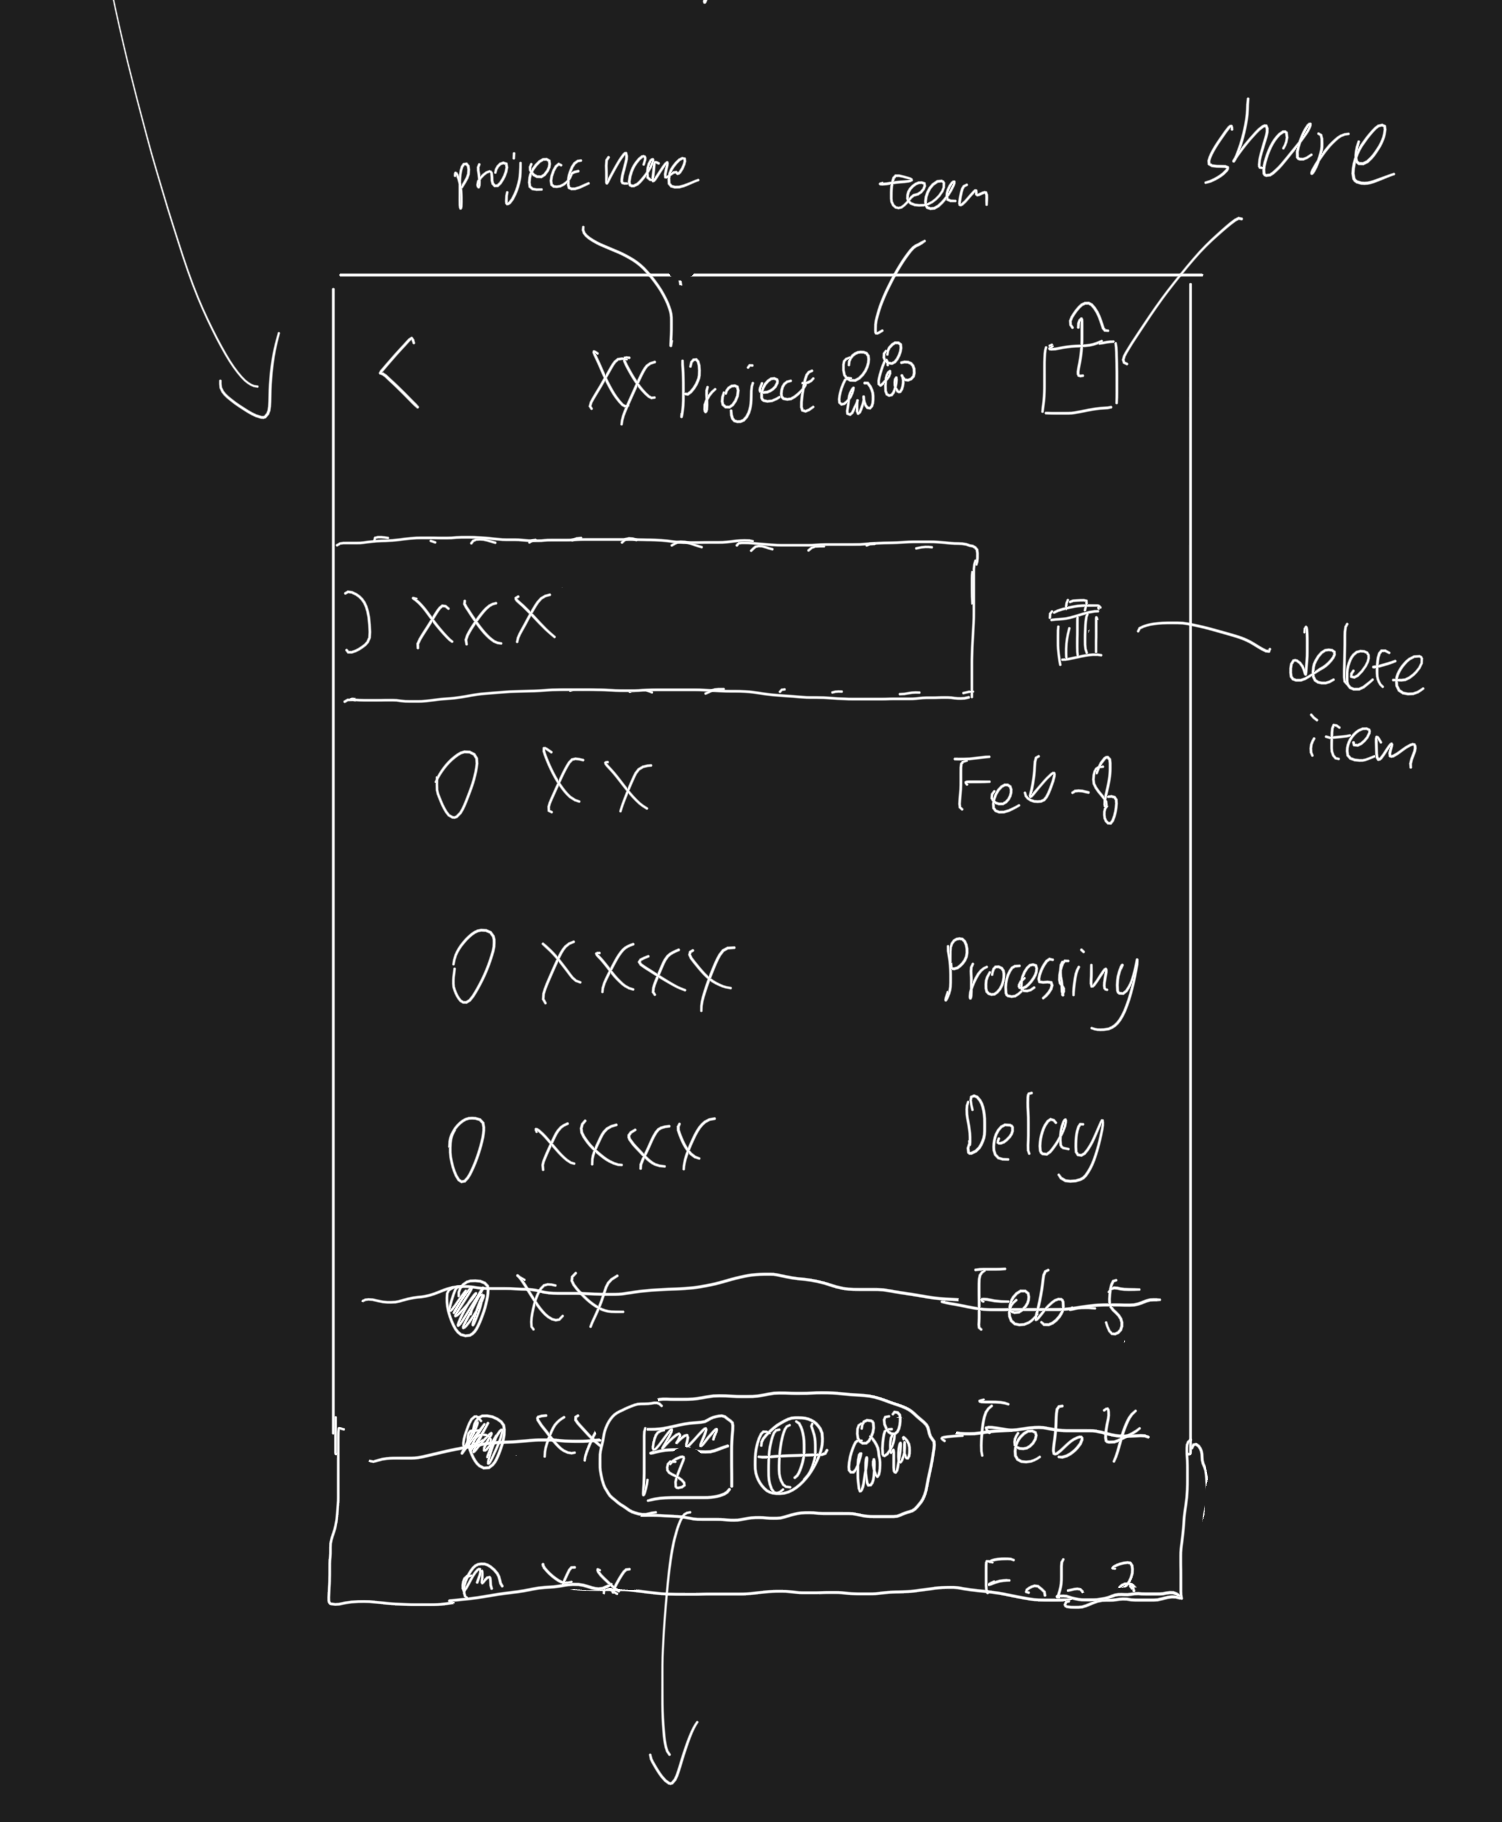 project name
team
share
< XX Project
XXX
delete
item
XX Feb-8
XXXX Processing
XXXX Delay
XX Feb 5
XX Feb 4
8
XX Feb 2